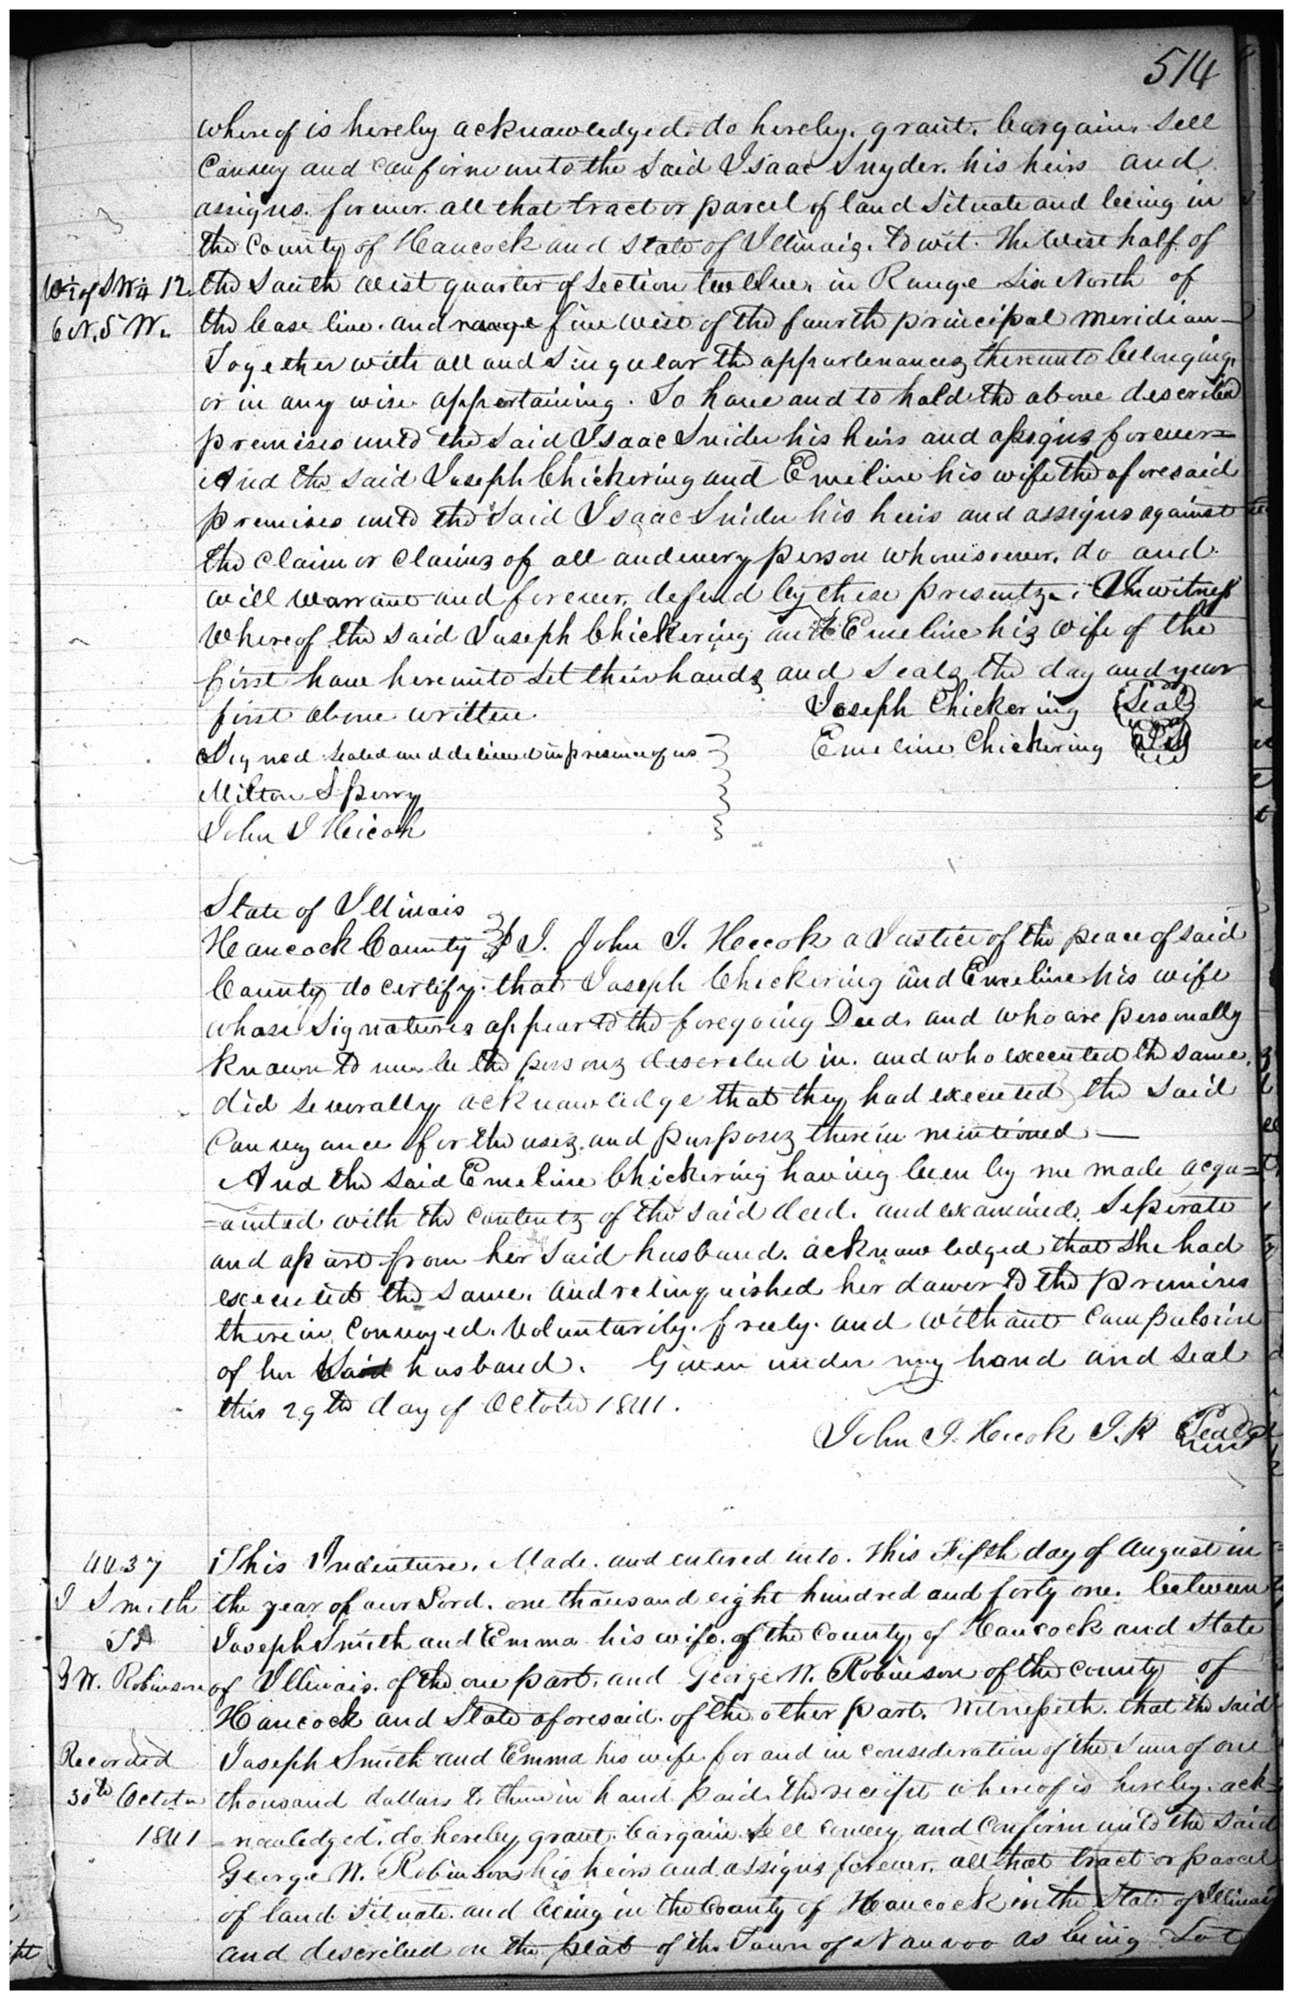 514
whereof is hereby acknowledged, do hereby, grant, bargain, Sell
Convey and confirm unto the Said Isaac Snyder, his heirs and
assigns, forever, all that tract or parcel of land Situate and being in
the County of Hancock and State of Illinois, to wit. The West half of
W½ of SW¼ 12 the South West quarter of Section twelve, in Range Six North of
6 N. 5 W. the base line, and range five west of the fourth principal meridian—
Together with all and Singular the appurtenances thereunto belonging,
or in any wise appertaining. To have and to hold the above described
premises unto the Said Isaac Snider his heirs and assigns forever=
And the said Joseph Chickering and Emeline his wife the aforesaid
premises unto the Said Isaac Snider his heirs and assigns against
the claim or claims of all and every person whomsoever, do and
will warrant and forever, defend by these presents. In witness
Whereof the said Joseph Chickering and Emeline his wife of the
first have hereunto Set their hands and Seals the day and year
first above written. Joseph Chickering (Seal)
Signed Sealed and delivered in presence of us Emeline Chickering
Milton Sperry
John J Hicok
State of Illinois
Hancock County I, John J. Hecok a Justice of the peace of said
County do certify that Joseph Chickering and Emeline his wife
whose Signatures appear to the foregoing Deed, and who are personally
known to me be the persons described in, and who executed the same,
did severally acknowledge that they had executed the Said
Conveyance for the uses, and purposes therein mentioned —
And the said Emeline Chickering having been by me made acqu=
=ainted with the contents of the said deed, and examined Seperate
and apart from her Said husband, acknowledged that She had
executed the same, and relinquished her dower to the premises
therein Conveyed, voluntarily, freely, and without compulsion
of her Said husband. Given under my hand and Seal
this 29th day of October 1841.
John J. Hecok J.P. (Seal)
4437 This Indenture, Made, and entered into, this Fifth day of August in
J Smith the year of our Lord, one thousand eight hundred and forty one, between
To Joseph Smith and Emma his wife, of the County of Hancock and State
G W. Robinson of Illinois, of the one part, and George W. Robinson of the county of
Hancock and State aforesaid, of the other part, Witnesseth, that the said
Recorded Joseph Smith and Emma his wife for and in consideration of the Sum of one
30th October thousand dollars to them in hand paid, the receipt whereof is hereby ack=
1841 =nowledged, do hereby grant, bargain Sell convey and Confirm unto the said
George W. Robinson his heirs and assigns forever, all that tract or parcel
of land Situate and being in the County of Hancock in the State of Illinois
and described on the plat of the Town of Nauvoo as being Lot